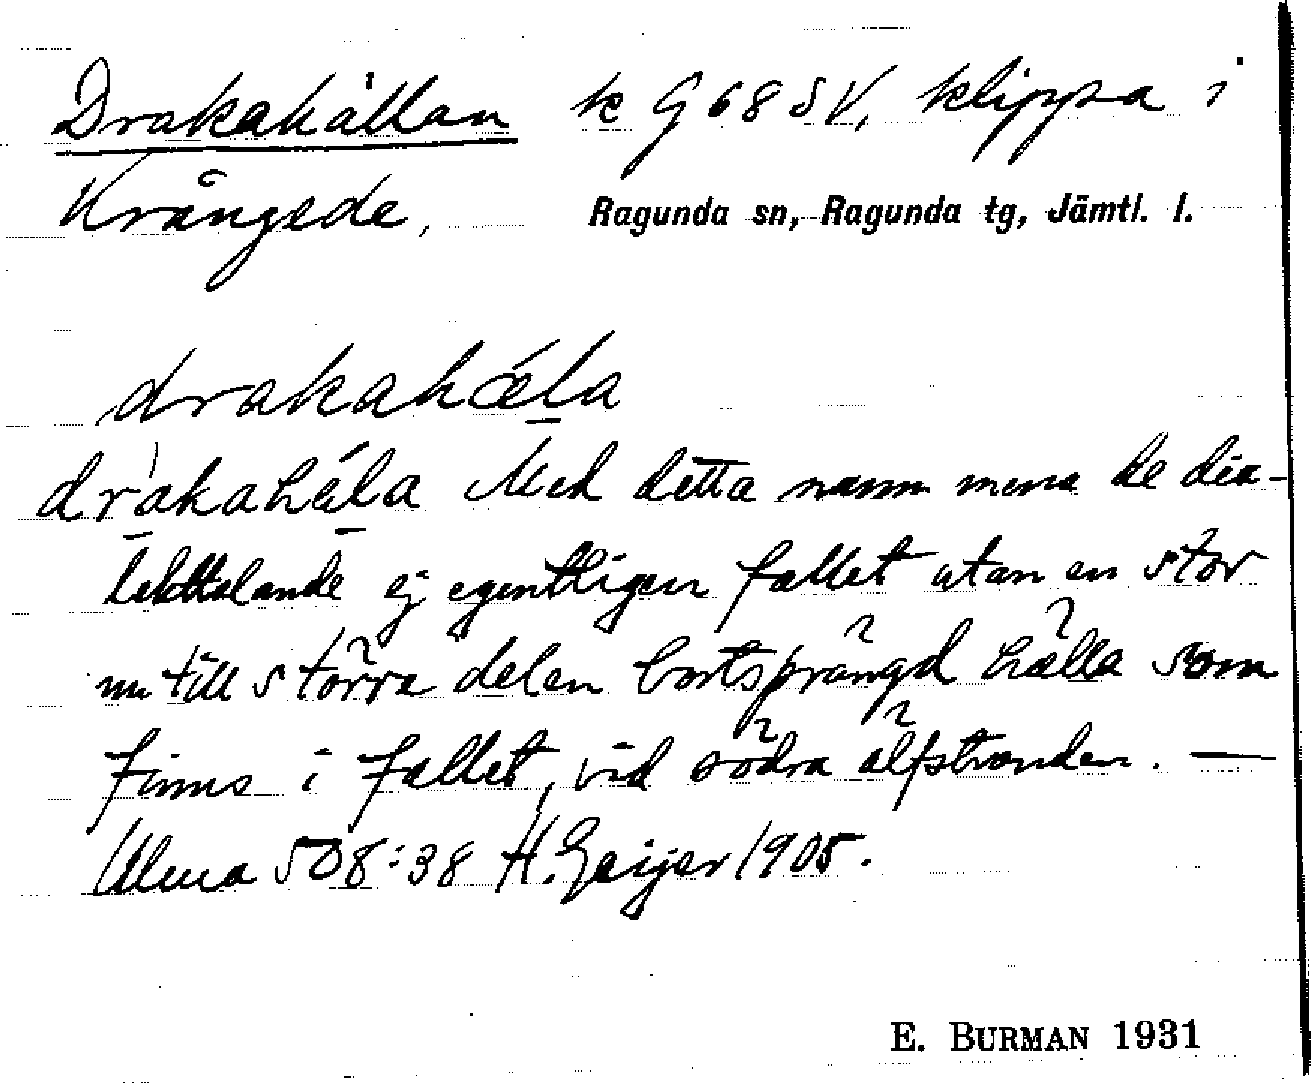 Drakahällan k G 68 SV, klippa i
Krångede, Ragunda sn, Ragunda tg, Jämtl. l.
drakahæla
drakahála Med detta namn mena de dia-
lekttalande ej egentligen fallet utan en stor
nu till större delen bortsprängd hälla som
finns i fallet, vid södra älfstranden. —
Ulma 508:38 H. Geijer 1905.
E. BURMAN 1931